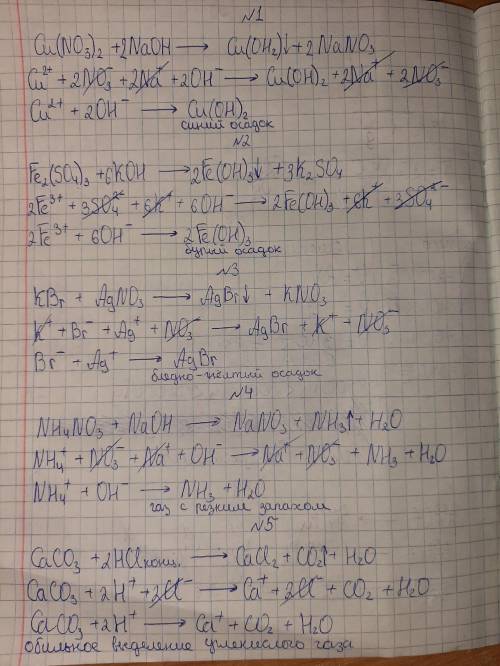 №1
Cu(NO₃)₂ + 2NaOH → Cu(OH₂)↓ + 2NaNO₃
Cu²⁺ + 2NO₃⁻ + 2Na⁺ + 2OH⁻ → Cu(OH)₂ + 2Na⁺ + 2NO₃⁻
Cu²⁺ + 2OH⁻ → Cu(OH)₂
синий осадок
№2
Fe₂(SO₄)₃ + 6KOH → 2Fe(OH)₃↓ + 3K₂SO₄
2Fe³⁺ + 3SO₄²⁻ + 6K⁺ + 6OH⁻ → 2Fe(OH)₃ + 6K⁺ + 3SO₄²⁻
2Fe³⁺ + 6OH⁻ → 2Fe(OH)₃
бурый осадок
№3
KBr + AgNO₃ → AgBr↓ + KNO₃
K⁺ + Br⁻ + Ag⁺ + NO₃⁻ → AgBr + K⁺ + NO₃⁻
Br⁻ + Ag⁺ → AgBr
бледно-жёлтый осадок
№4
NH₄NO₃ + NaOH → NaNO₃ + NH₃↑ + H₂O
NH₄⁺ + NO₃⁻ + Na⁺ + OH⁻ → Na⁺ + NO₃⁻ + NH₃ + H₂O
NH₄⁺ + OH⁻ → NH₃ + H₂O
газ с резким запахом
№5
CaCO₃ + 2HCl конц. → CaCl₂ + CO₂↑ + H₂O
CaCO₃ + 2H⁺ + 2Cl⁻ → Ca⁺ + 2Cl⁻ + CO₂ + H₂O
CaCO₃ + 2H⁺ → Ca⁺ + CO₂ + H₂O
обильное выделение углекислого газа